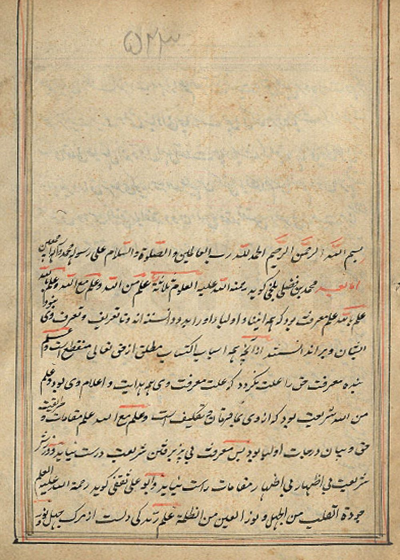 ۵۲۳
بسم الله الرحمن الرحیم الحمدلله رب العالمین و الصلوة و السلام علی رسوله محمد و آله اجمعین
اما بعد محمد بن فضل بلخی گوید رحمة الله علیه العلوم ثلاثة علم من الله و علم مع الله و علم بالله
علم بالله علم معرفت بود که همه انبیا و اولیا او را بدو دانسته اند و تا تعریف و تعرف وی
ایشان ویرا ندانستند از آنچه همه اسباب اکتساب مطلق از حق تعالی منقطع است و علم
بنده معرفت حق را علت نگردد که علت معرفت وی هم هدایت و اعلام وی بود و علم
من الله شریعت بود که از وی بما فرمان و تکلیف است و علم مع الله علم مقامات و طریقت
حق و بیان درجات اولیا بود پس معرفت بی پذیرفتن شریعت درست نیاید و ورزش
شریعت بی اظهار مقامات راست نیاید و ابو علی ثقفی گوید رحمة الله علیه العلم
حیوة القلب من الجهل و نور العین من الظلمة علم زندگی دلست از مرگ جهل و نور